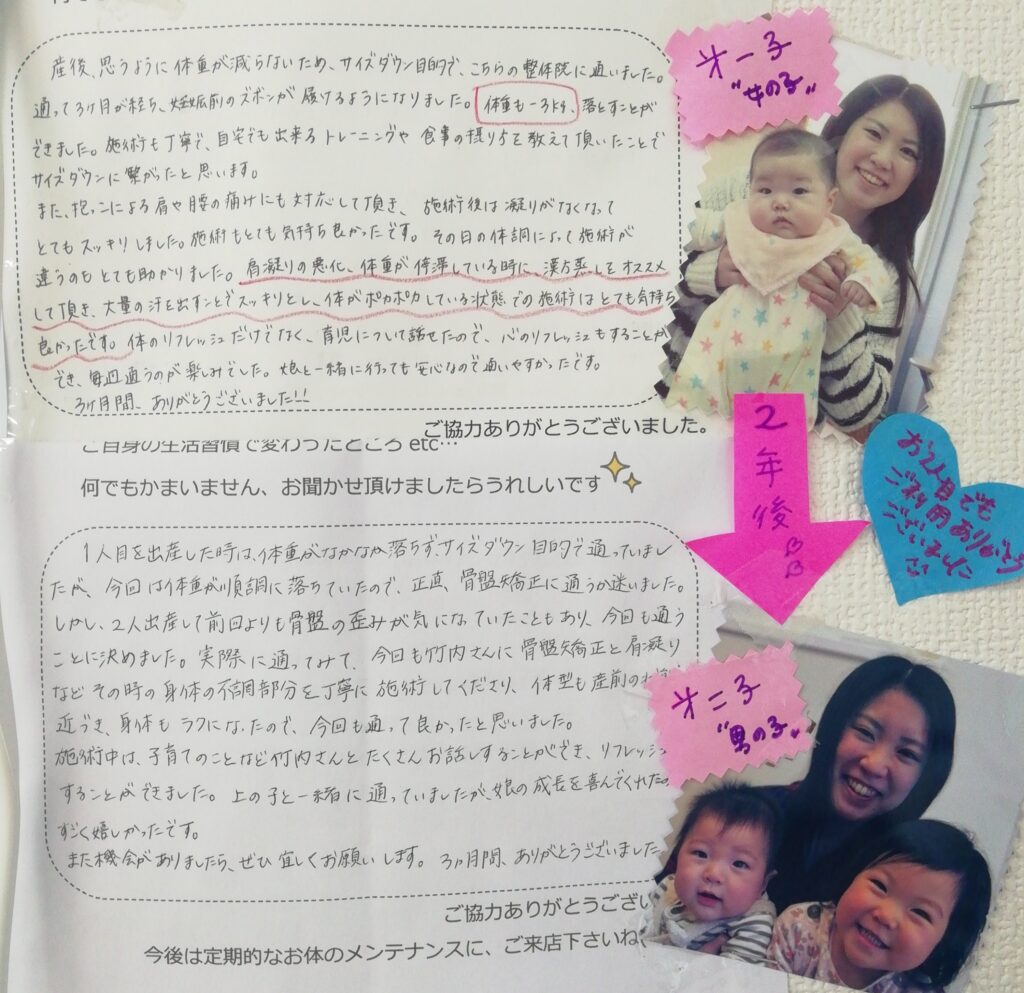 産後、思うように体重が減らないため、サイズダウン目的で、こちらの整体院に通いました。
通って3ヶ月が経ち、妊娠前のズボンが履けるようになりました。体重も-3kg、落とすことが
できました。施術も丁寧で、自宅でも出来るトレーニングや食事の摂り方を教えて頂いたことで
サイズダウンに繋がったと思います。
また、抱っこによる肩や腰の痛みにも対応して頂き、施術後は凝りがなくなって
とてもスッキリしました。施術もとても気持ち良かったです。その日の体調によって施術が
違うのもとても助かりました。肩凝りの悪化、体重が停滞している時に、漢方蒸しをオススメ
して頂き、大量の汗を出すことでスッキリとし、体がポカポカしている状態での施術はとても気持ち
良かったです。体のリフレッシュだけでなく、育児について話せたので、心のリフレッシュもすることが
でき、毎週通うのが楽しみでした。娘と一緒に行っても安心なので通いやすかったです。
3ヶ月間、ありがとうございました!!
ご協力ありがとうございました。
才一子
"女の子"
2年後
お2人目でも
ご利用ありがとう
ございました
ご自身の生活習慣で変わったところ etc…
何でもかまいません、お聞かせ頂けましたらうれしいです
1人目を出産した時は、体重がなかなか落ちず、サイズダウン目的で通っていまし
たが、今回は体重が順調に落ちていたので、正直、骨盤矯正に通うか迷いました。
しかし、2人出産して前回よりも骨盤の歪みが気になっていたこともあり、今回も通う
ことに決めました。実際に通ってみて、今回も竹内さんに骨盤矯正と肩凝り
などその時の身体の不調部分を丁寧に施術してくださり、体型も産前の
近づき、身体もラクになったので、今回も通って良かったと思いました。
施術中は、子育てのことなど竹内さんとたくさんお話しすることができ、リフレッシュ
することができました。上の子と一緒に通っていましたが、娘の成長を喜んでくれた
すごく嬉しかったです。
また機会がありましたら、ぜひ宜しくお願いします。3ヵ月間、ありがとうございました
ご協力ありがとうござい
今後は定期的なお体のメンテナンスに、ご来店下さいね
才二子
"男の子"